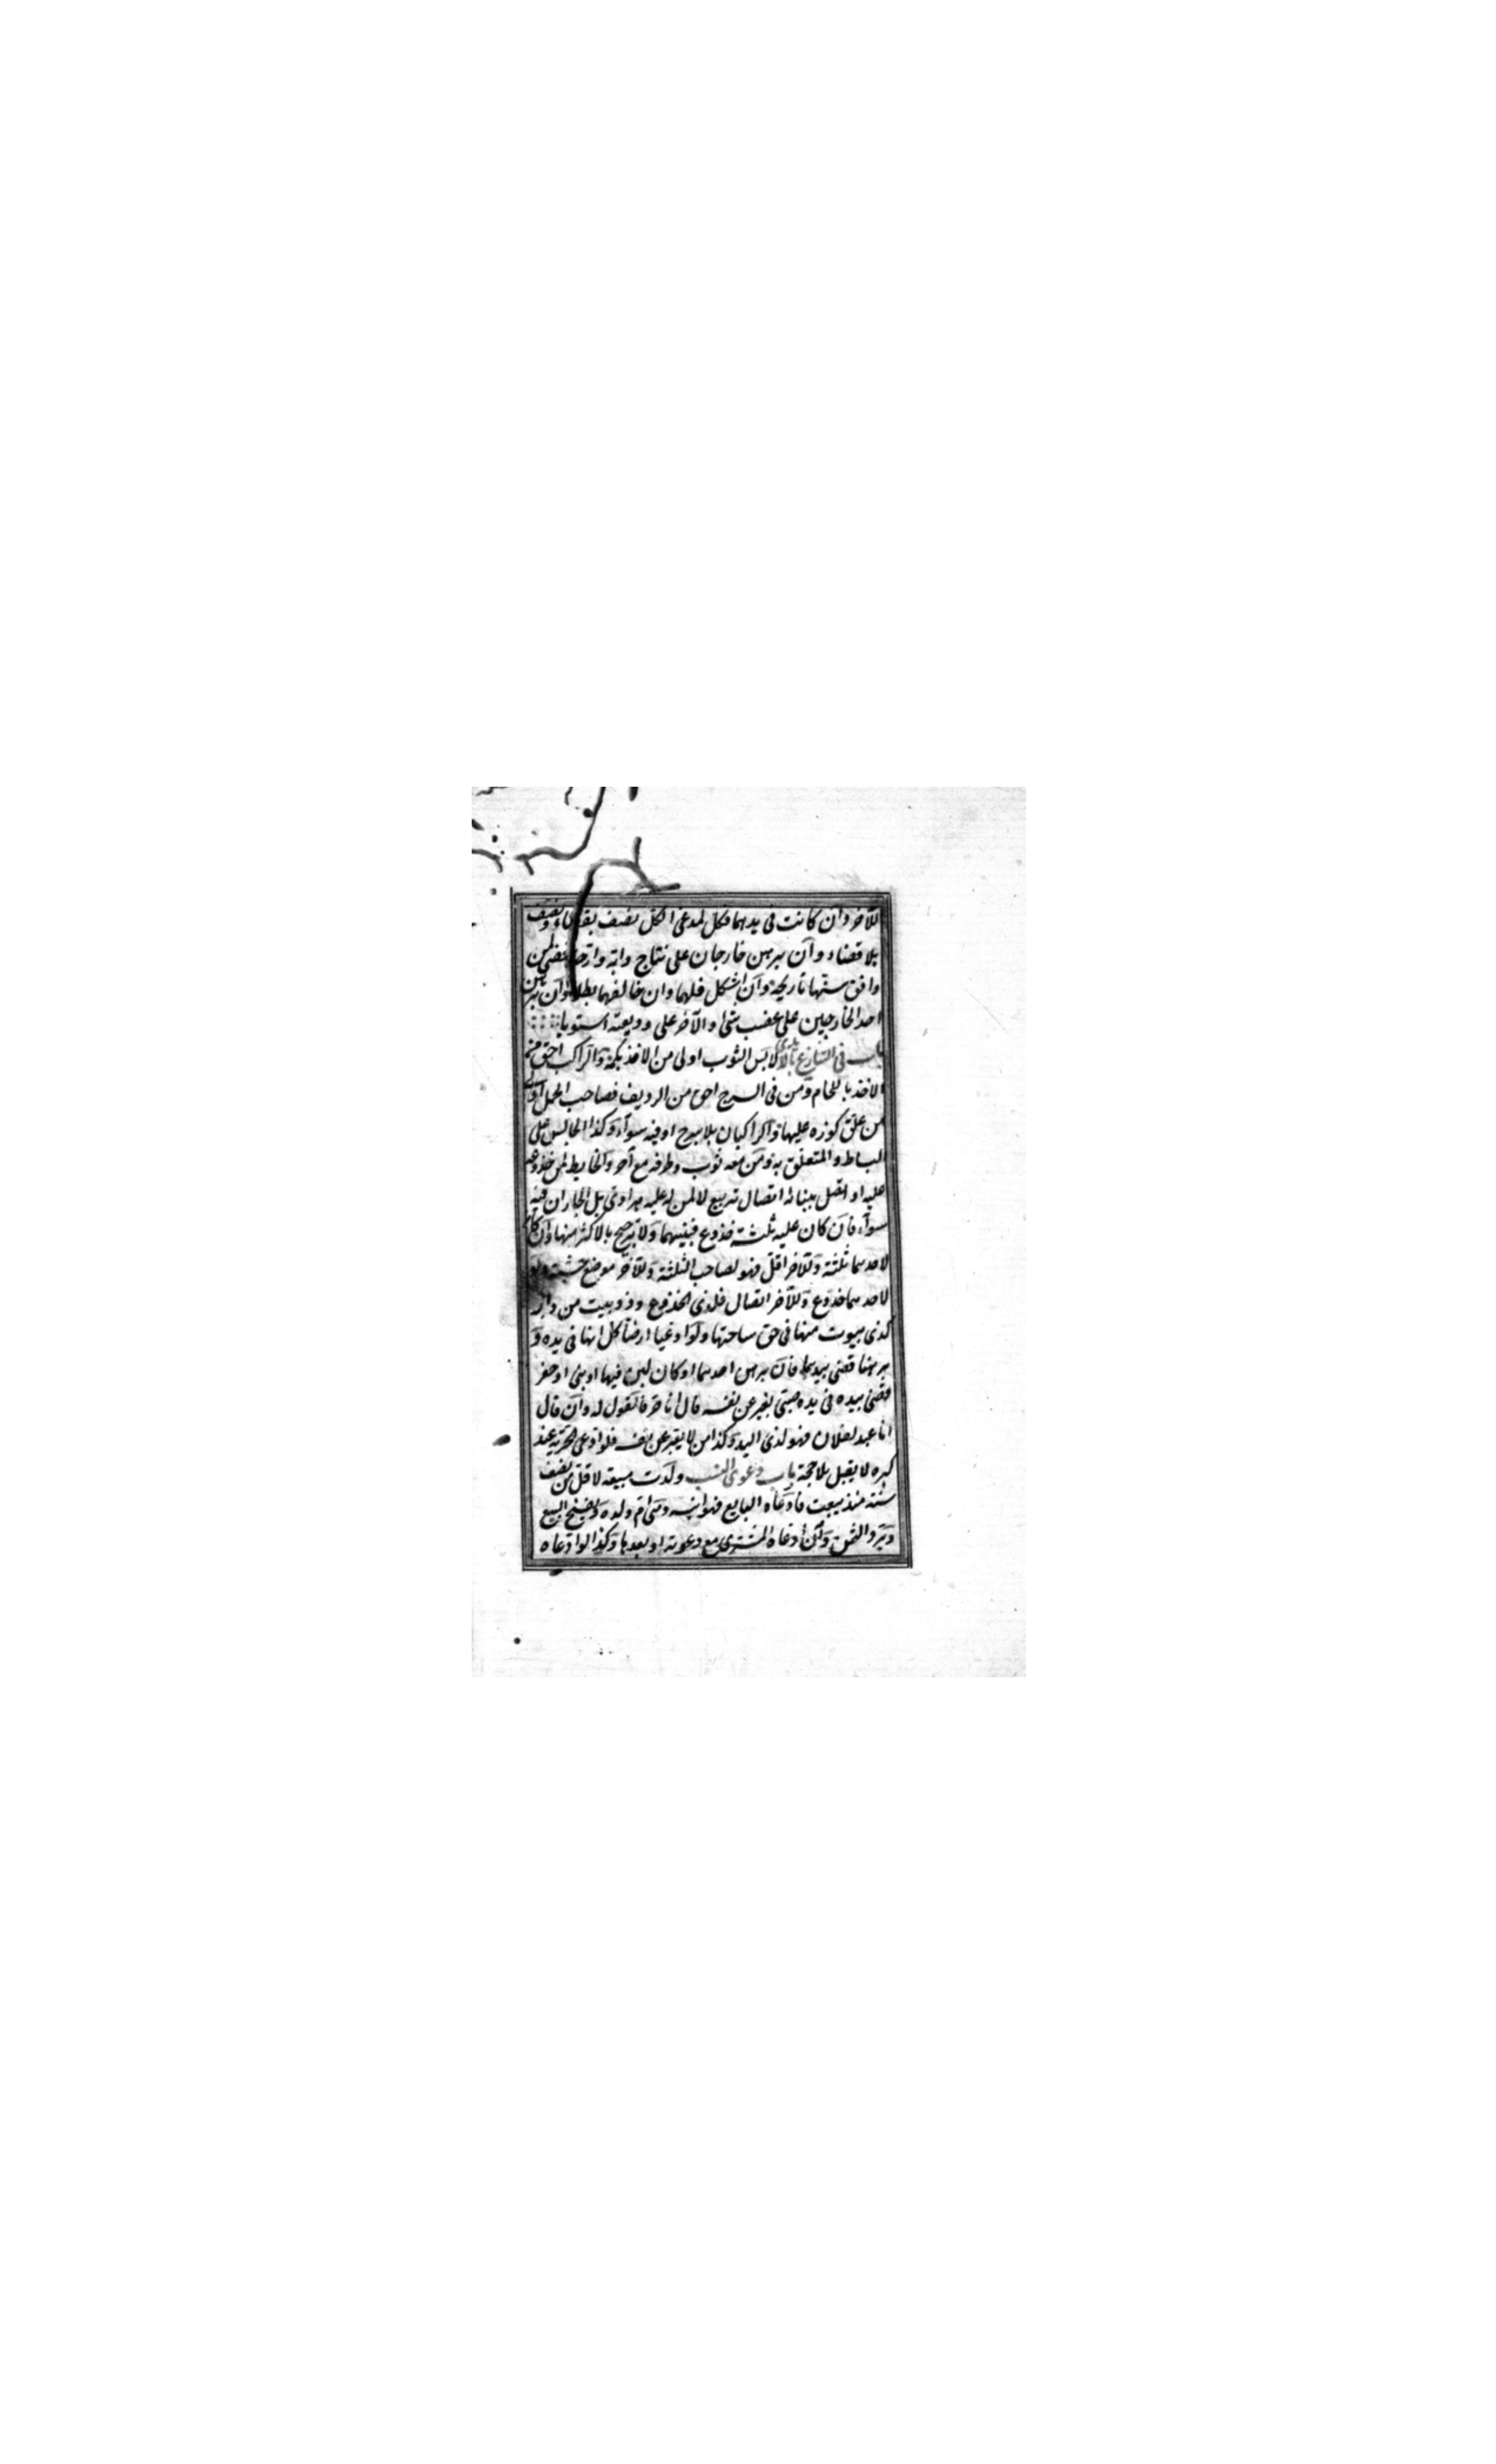 للآخر وان كانت فى يديهما فكل لمدعى الكل نصف بقضاء ونصف
بلا قضاء وان برهن خارجان على نتاج دابة وارخا قضى لمن
وافق سنها تاريخه وان اشكل فلهما وان خالفهما بطلا وان برهن
احد الخارجين على غصب شئ والآخر على وديعته استويا
باب فى التنازع بالايدى لابس الثوب اولى من الآخذ بكمه والراكب احق من
الآخذ باللجام ومن فى السرج احق من الرديف فصاحب الحمل اولى
من علق كوزه عليها والراكبان بلا سرج او فيه سوآء وكذا الجالس على
البساط والمتعلق به ومن معه ثوب وطرفه مع آخر والحايط لمن جذوعه
عليه او اتصل ببنائه اتصال تربيع لا لمن له عليه هرادى بل الجاران فيه
سوآء فان كان عليه ثلثة جذوع فبينهما ولا ترجيح بالاكثر منها وان كان
لاحدهما ثلثة وللآخر اقل فهو لصاحب الثلثة وللآخر موضع خشبته ولو
لاحدهما جذوع وللآخر اتصال فلذى الجذوع وذو بيت من دار
كذى بيوت منها فى حق ساحتها ولو ادعيا ارضا كل انها فى يده و
برهنا قضى بيدهما فان برهن احدهما او كان لبن فيها او بنى او حفر
قضى بيده فى يده صبى يعبر عن نفسه قال انا حر فالقول له وان قال
انا عبد لفلان فهو لذى اليد وكذا من لا يعبر عن نفسه فلو ادعى الحرية عند
كبره لا يقبل بلا حجة باب دعوى النسب ولدت مبيعة لاقل من نصف
سنة منذ بيعت فادعاه البايع فهو ابنه وهى ام ولده ويفسخ البيع
ويرد الثمن وان ادعاه المشترى مع دعوته او بعدها وكذا لو ادعاه